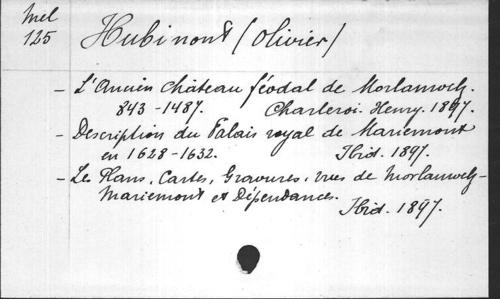 Mel
125
Hubinont (Olivier)
- L'Ancien Château féodal de Morlanwelz.
843-1487. Charleroi. Henry. 1897.
- Description du Palais royal de Mariemont
en 1628-1632. Ibid. 1897.
- Les Plans, Cartes, Gravures, vues de Morlanwelz-
Mariemont et Dépendances.
Ibid. 1897.